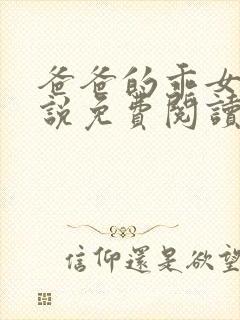 爸爸的乖女
說免費閱讀
信仰還是欲望